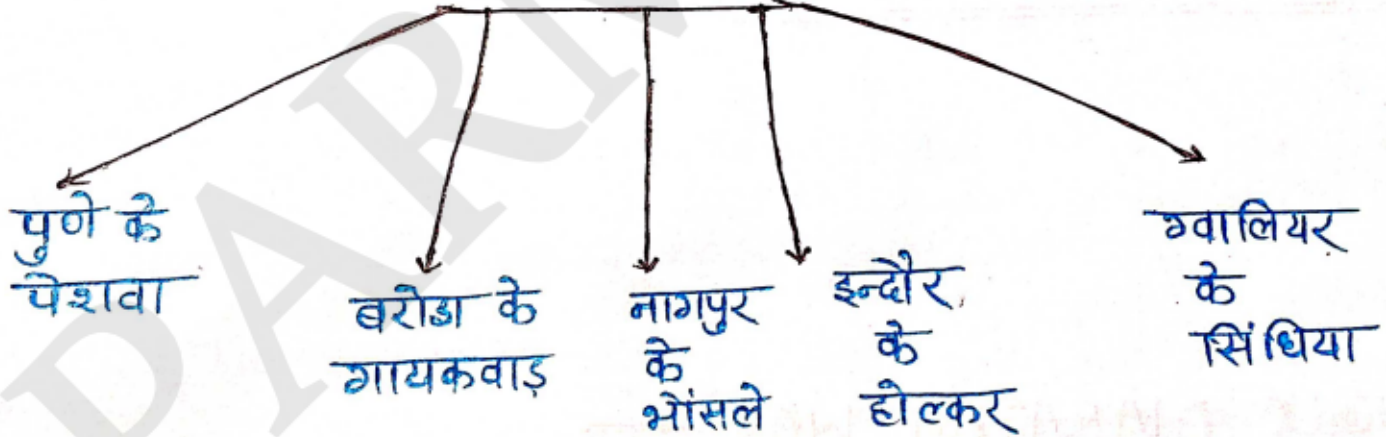 पुणे के
पेशवा
बरोडा के
गायकवाड़
नागपुर
के
भोंसले
इन्दौर
के
होल्कर
ग्वालियर
के
सिंधिया